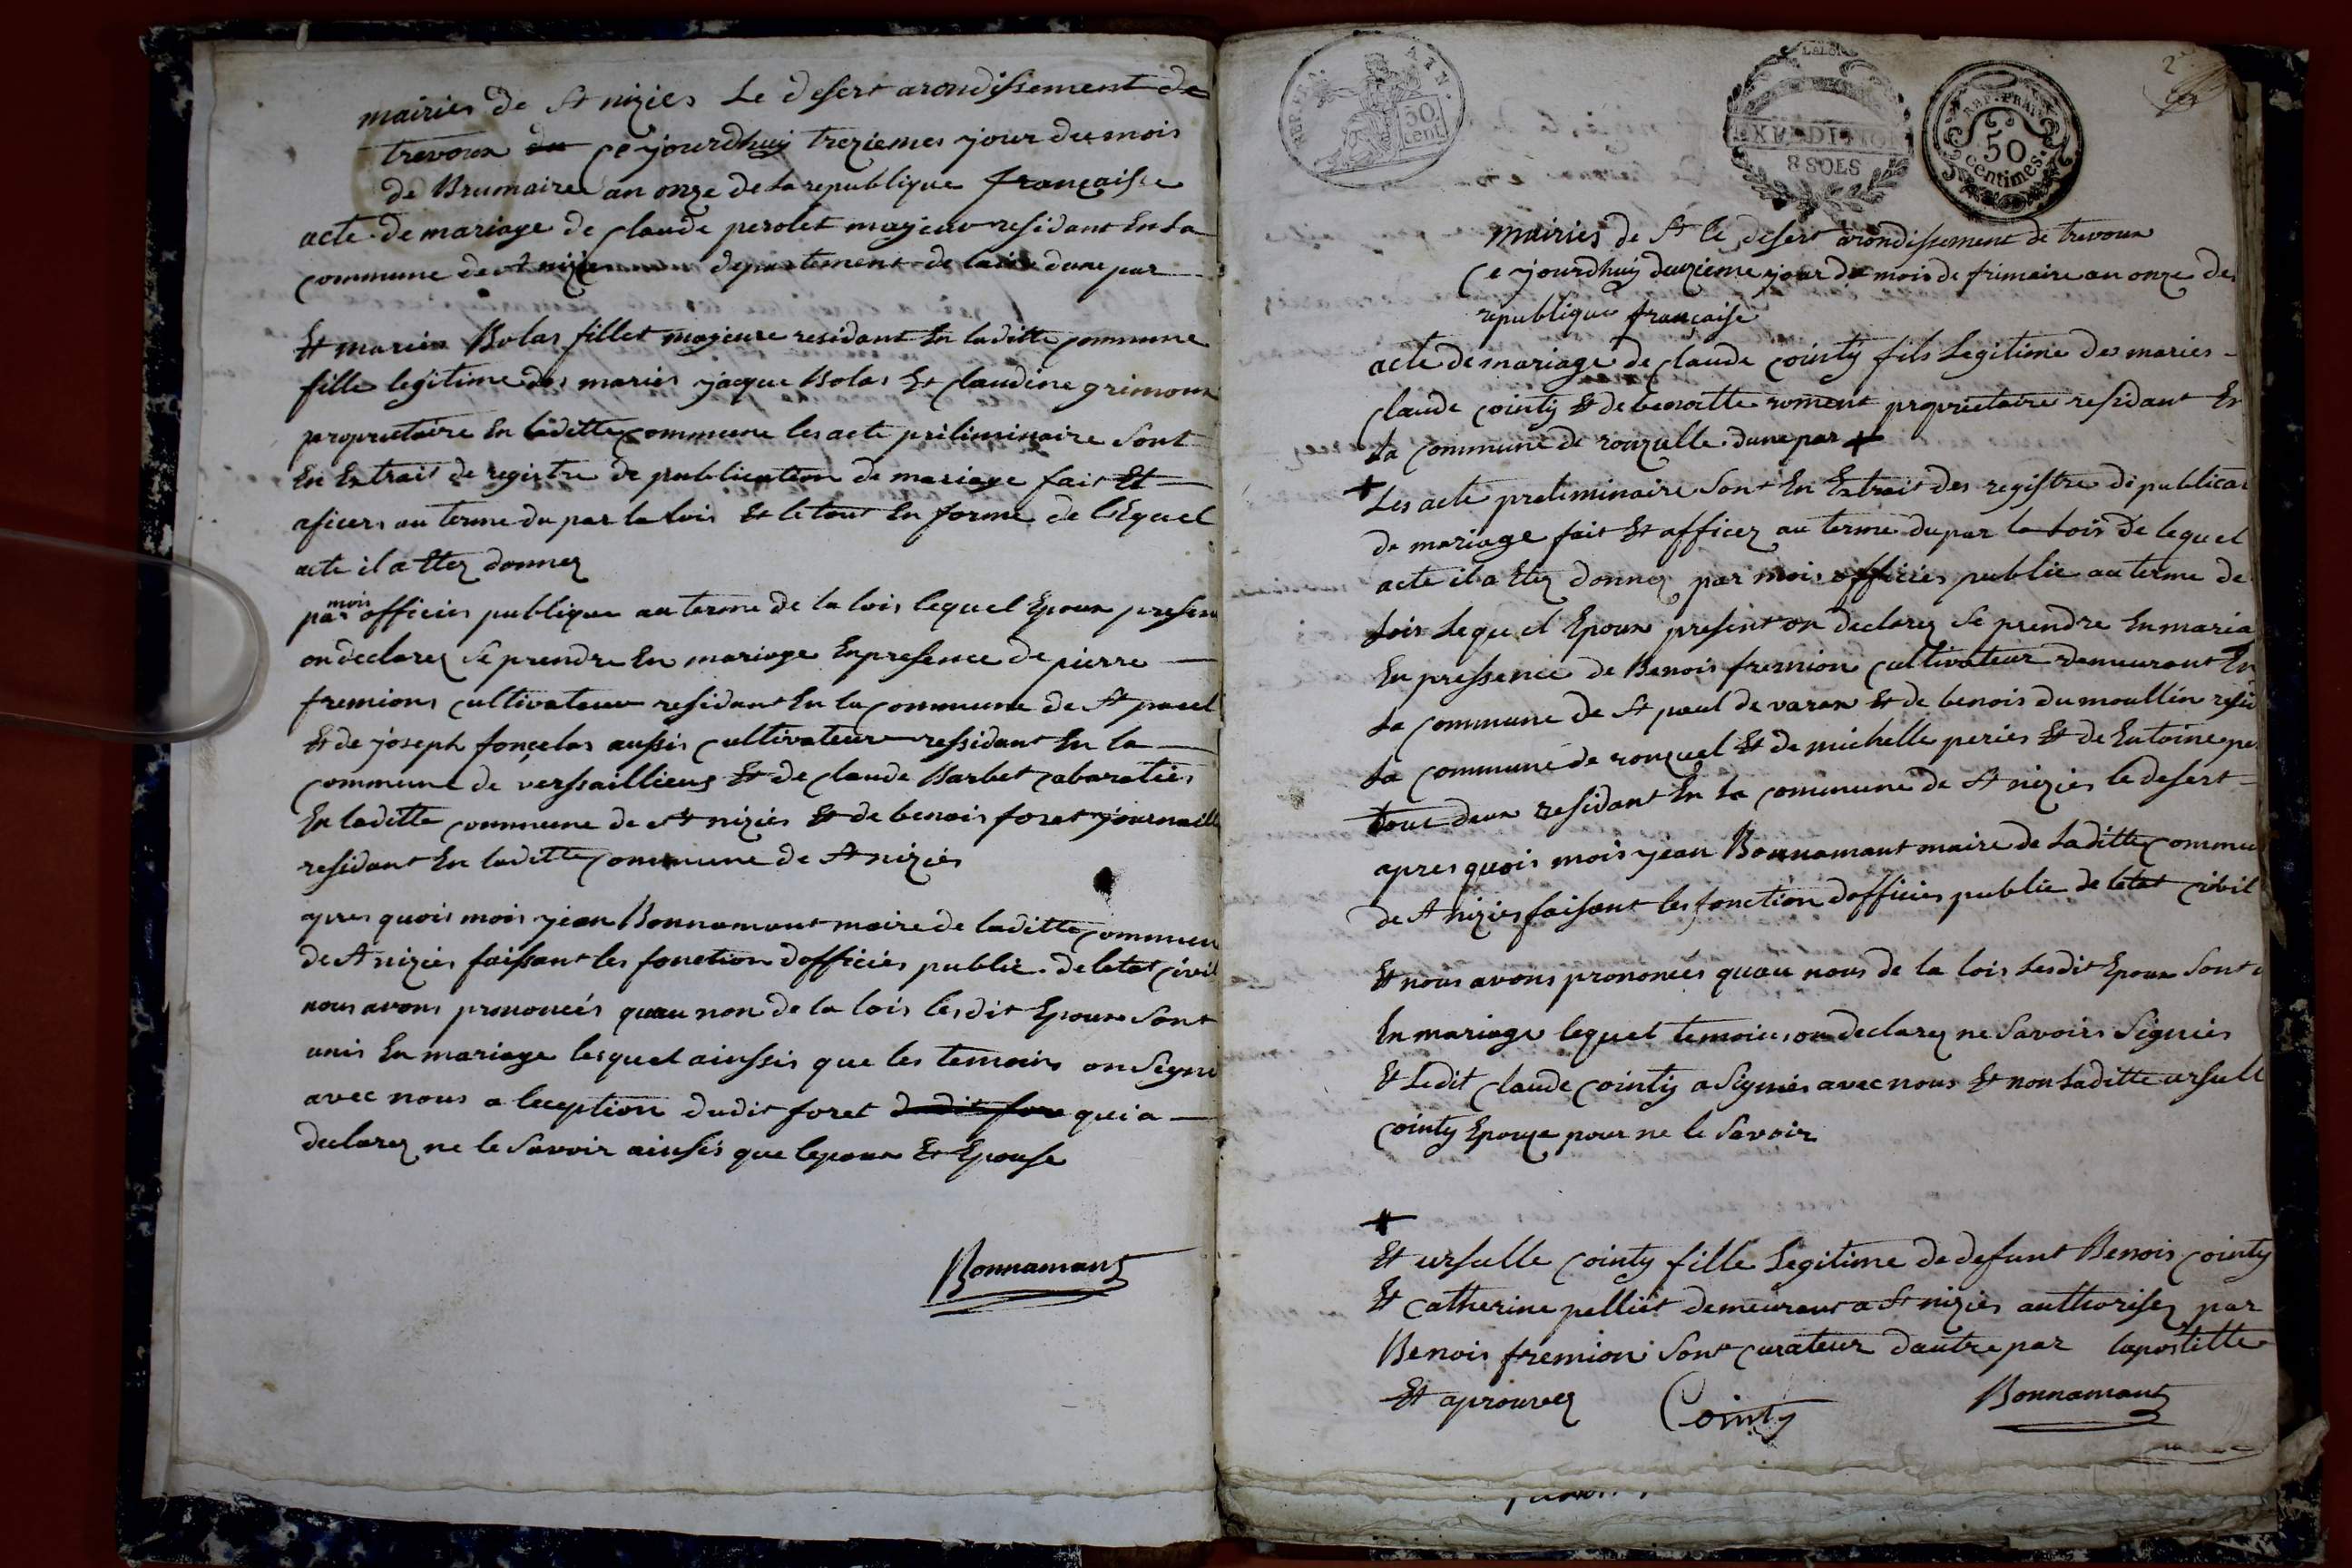 mairies de St nizies Le desert arondissement de
trevoux du Ce yourdhuy treziemes jour du mois
de Brumaire an onze de la republique françaisse
acte de mariage de Claude perolet mageur residant En La
commune de St nizies departement de lain dune par
Et marien Bolas fillet mageure residant En laditte commune
fille legitime des maries jaque Bolas Et Claudine grimoux
proprietaire En laditte commune les acte priliminaire Sont
En Extrait de registre de publication de mariage fait Et
aficers au terme du par la lois Et le tout En forme de lEquel
acte il a Ettez donnez
par mois officies publique au terme de la lois lequel Epoux present
on declarez Se prendre En mariage Enpresence de pierre
fremions cultivateur residant En la commune de St paul
Et de joseph fonçelas aussis Cultivateur ressidant En la
commune de verssaillieux Et de Claude Barbet Cabaraties
En laditte commune de St nizies Et de benois foret journaill
residant En laditte Commune de St nizies
apres quois mois jean Bonnamant maire de laditte Commun
de St nizies faissant les fonction dofficiés public de letat Civil
nous avons prononcés quau non de la lois lesdit Epoux Sont
unis En mariage lesquel ainssis que les temoins on Signe
avec nous a leception dudit foret dudit fore qui a
declarez ne le Savoir ainssis que lepoux Et Epouse
Bonnamant
REP. FRA. 7 N.
50 cent
EXPEDITION
8 SOLS
REP. FRAN.
50
Centimes.
2
mairies de St le desert arondissement de trevoux
Ce yourdhuy deuzieme jour du mois de frimaire an onze de
republique française
acte de mariage de Claude Cointy fils Legitime des maries
Claude Cointy Et de benoitte roment proprietaire residant En
La Commune de ronzulle dune par +
+ Les acte preliminaire Sont En Extrait des registre de publicat
de mariage fait Et afficez au terme du par la Lois de lequel
acte il a Etez donnez par mois officies public au terme de
Lois Lequel Epoux present on declarez Se prendre En maria
En pressence de Benois fremion Cultivateur demeurant En
La Commune de St paul de varax Et de benois dumoullin resid
La Commune de ronzuel Et de michelle peries Et de Entoine pe
tout deux residant En La Commune de St nizies le desert
apres quois mois jean Bonnamant maire de Laditte Commu
de St nizies faisant les fonction dofficies public de letat Civil
Et nous avons prononcés quau nous de la lois Lesdit Epoux Sont u
En mariage lequel temoins on declarez ne Savoirs Signies
Et Ledit Claude Cointy a Signés avec nous Et non Laditte ursull
Cointy Epouze pour ne le Savoir
+
Et ursulle Cointy fille Legitime de defunt Benois Cointy
Et Catherine pelliet demeurant a St nizies authorisez par
Benois fremion Sont Curateur dautre par lapostille
Et aprouvez Cointy Bonnamant